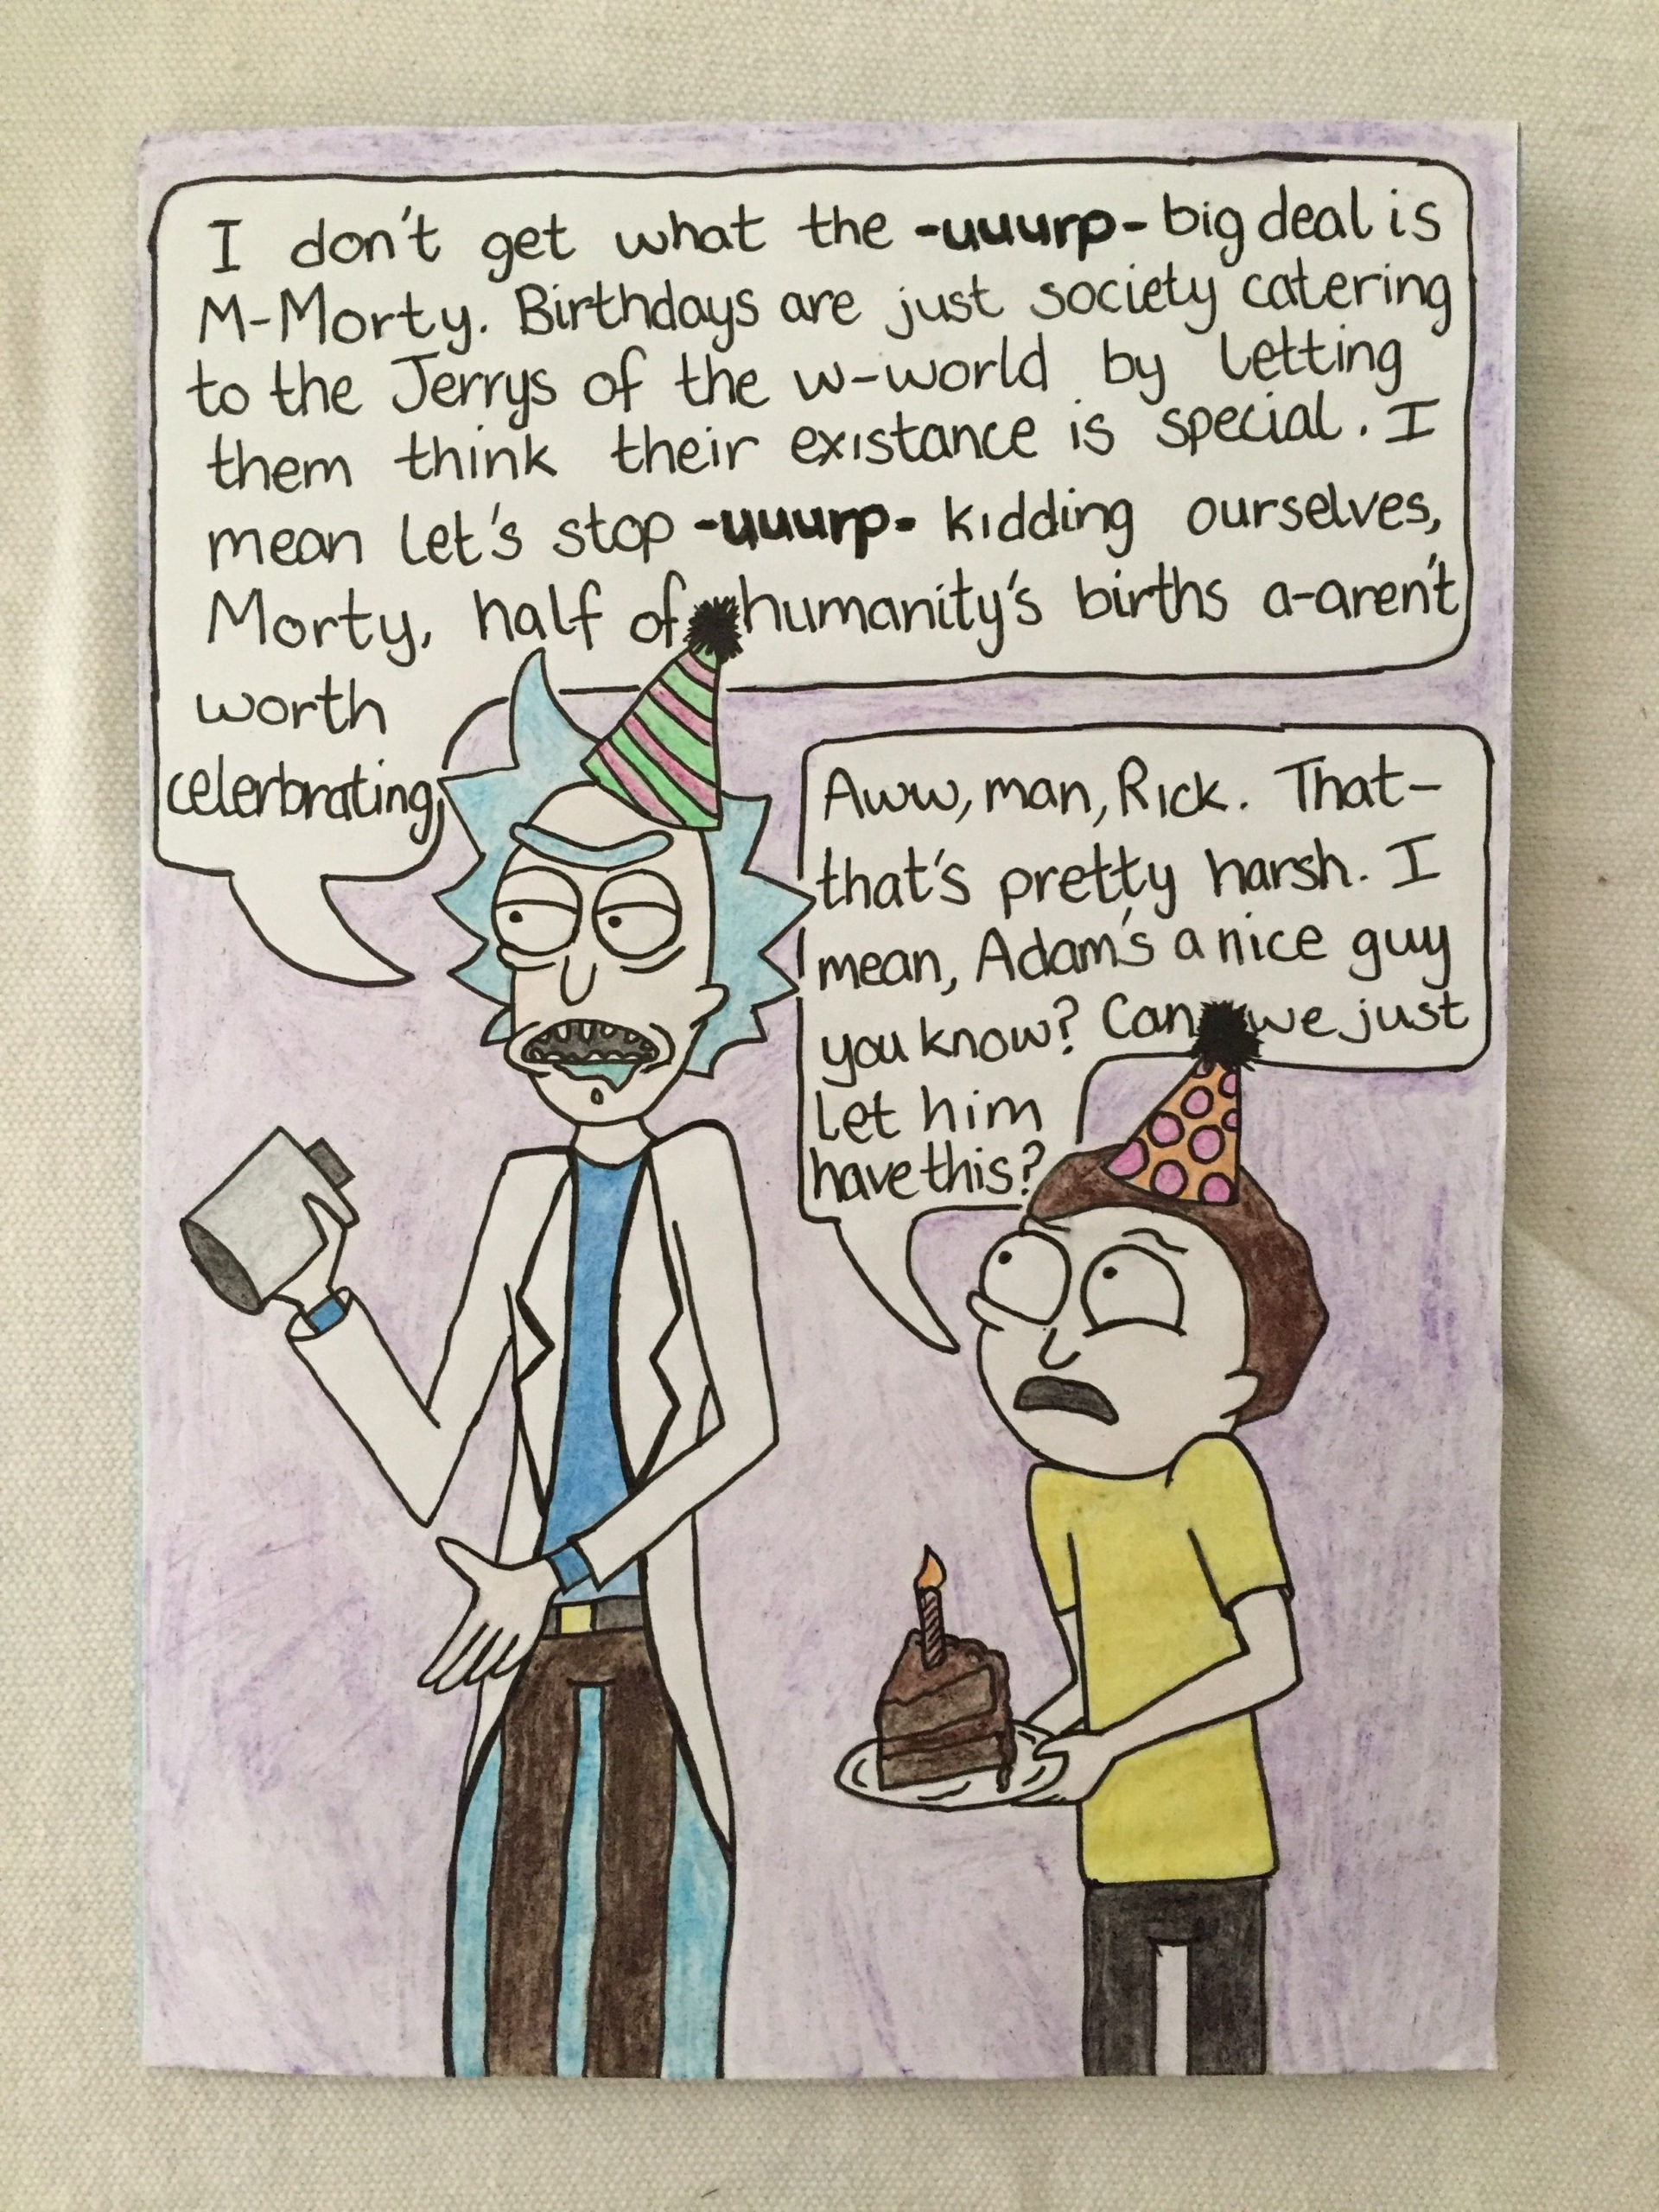 I don't get what the -uuurp- big deal is
M-Morty. Birthdays are just society catering
to the Jerrys of the w-world by letting
them think their existance is special. I
mean let's stop -uuurp- kidding ourselves,
Morty, half of humanity's births a-aren't
worth
celerbrating,
Aww, man, Rick. That-
that's pretty harsh. I
mean, Adam's a nice guy
you know? Can we just
let him
have this?